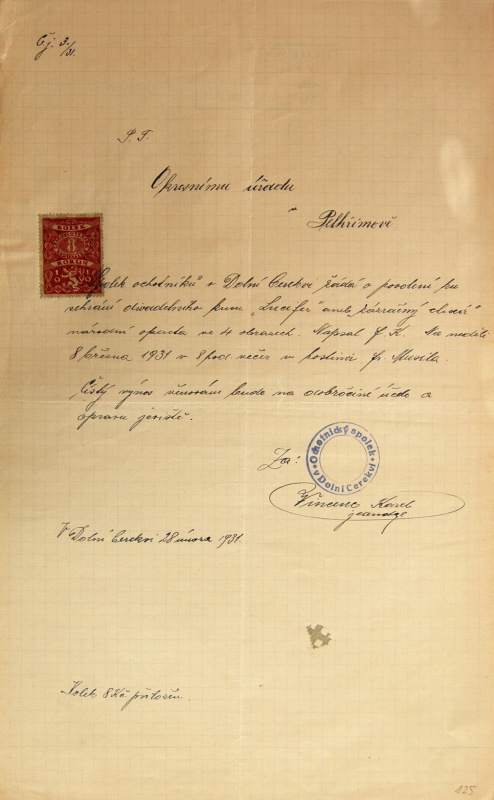 Čj. 3./31.
P. T.
Okresnímu úřadu
v
Pelhřimově
KOLEK
8
KORUN
Spolek ochotníků v Dolní Cerekvi žádá o povolení ku
sehrání divadelního kusu „Lucifer" aneb zázračný elixír"
národní opereta ve 4 obrazech. Napsal J. K. Na neděli
8 března 1931 v 8 hod večer v hostinci Fr. Musila.
Čistý výnos věnován bude na dobročiné účele a
opravu jeviště.
Za:
Ochotnický spolek v Dolní Cerekvi
Vincenc Karel
jednatel
V Dolní Cerekvi 28 února 1931.
Kolek 8 Kč přiložen.
125